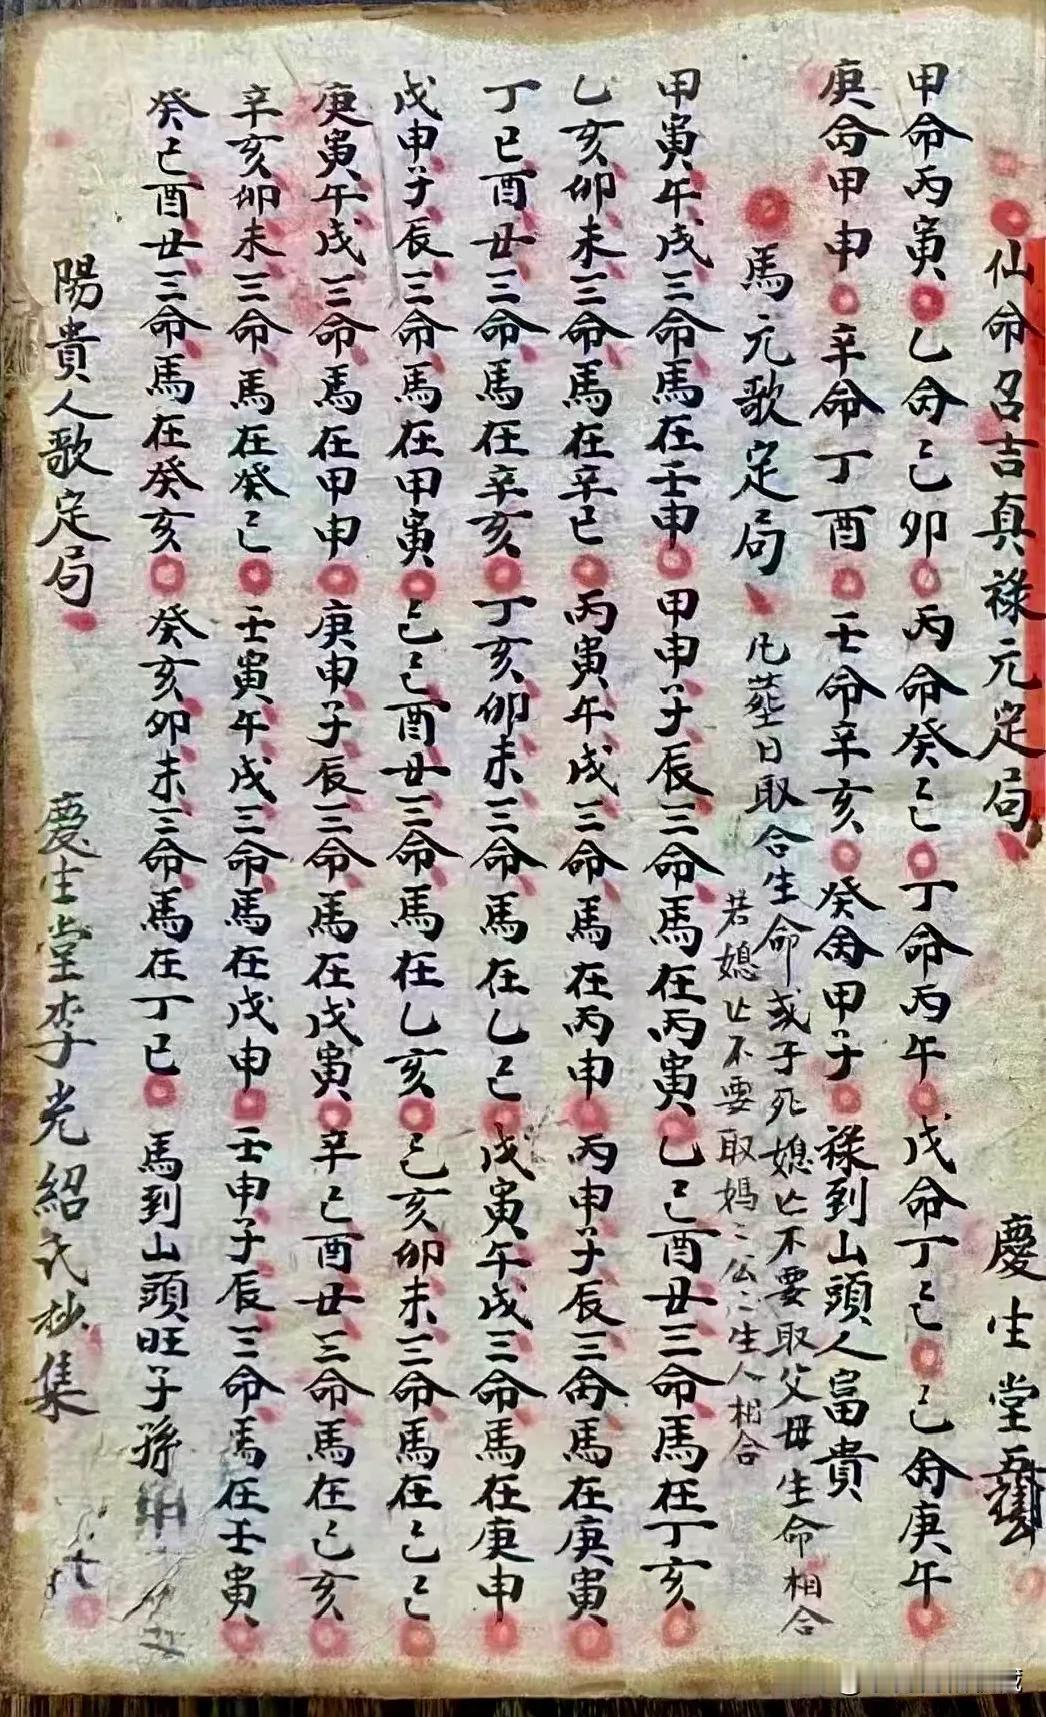 仙命呂吉真祿元定局 慶生堂
甲命丙寅 乙命己卯 丙命癸巳 丁命丙午 戊命丁巳 己命庚午
庚命甲申 辛命丁酉 壬命辛亥 癸命甲子 祿到山頭人富貴
馬元歌定局
凡葬日取合生命或子死媳亡不要取父母生命相合
若媳亡不要取媽〻公〻生人相合
甲寅午戌三命馬在壬申 甲申子辰三命馬在丙寅 乙巳酉丑三命馬在丁亥
乙亥卯未三命馬在辛巳 丙寅午戌三命馬在丙申 丙申子辰三命馬在庚寅
丁巳酉丑三命馬在辛亥 丁亥卯未三命馬在乙巳 戊寅午戌三命馬在庚申
戊申子辰三命馬在甲寅 己巳酉丑三命馬在乙亥 己亥卯未三命馬在己巳
庚寅午戌三命馬在甲申 庚申子辰三命馬在戊寅 辛巳酉丑三命馬在己亥
辛亥卯未三命馬在癸巳 壬寅午戌三命馬在戊申 壬申子辰三命馬在壬寅
癸巳酉丑三命馬在癸亥 癸亥卯未三命馬在丁巳 馬到山頭旺子孫
陽貴人歌定局 慶生堂李光紹氏抄集